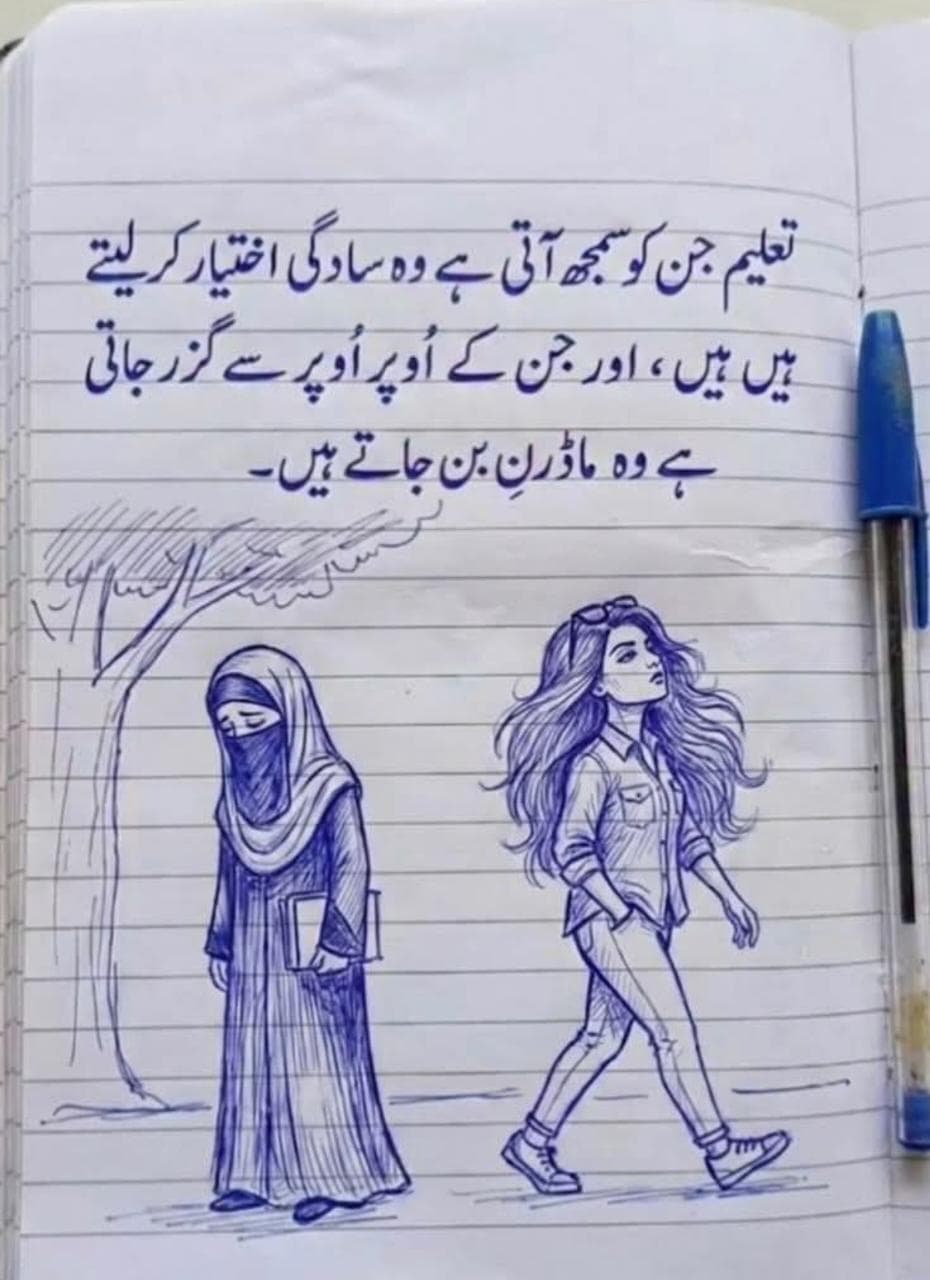 تعلیم جن کو سمجھ آتی ہے وہ سادگی اختیار کر لیتے
ہیں ہیں، اور جن کے اُوپر اُوپر سے گزر جاتی
ہے وہ ماڈرنِ بن جاتے ہیں۔